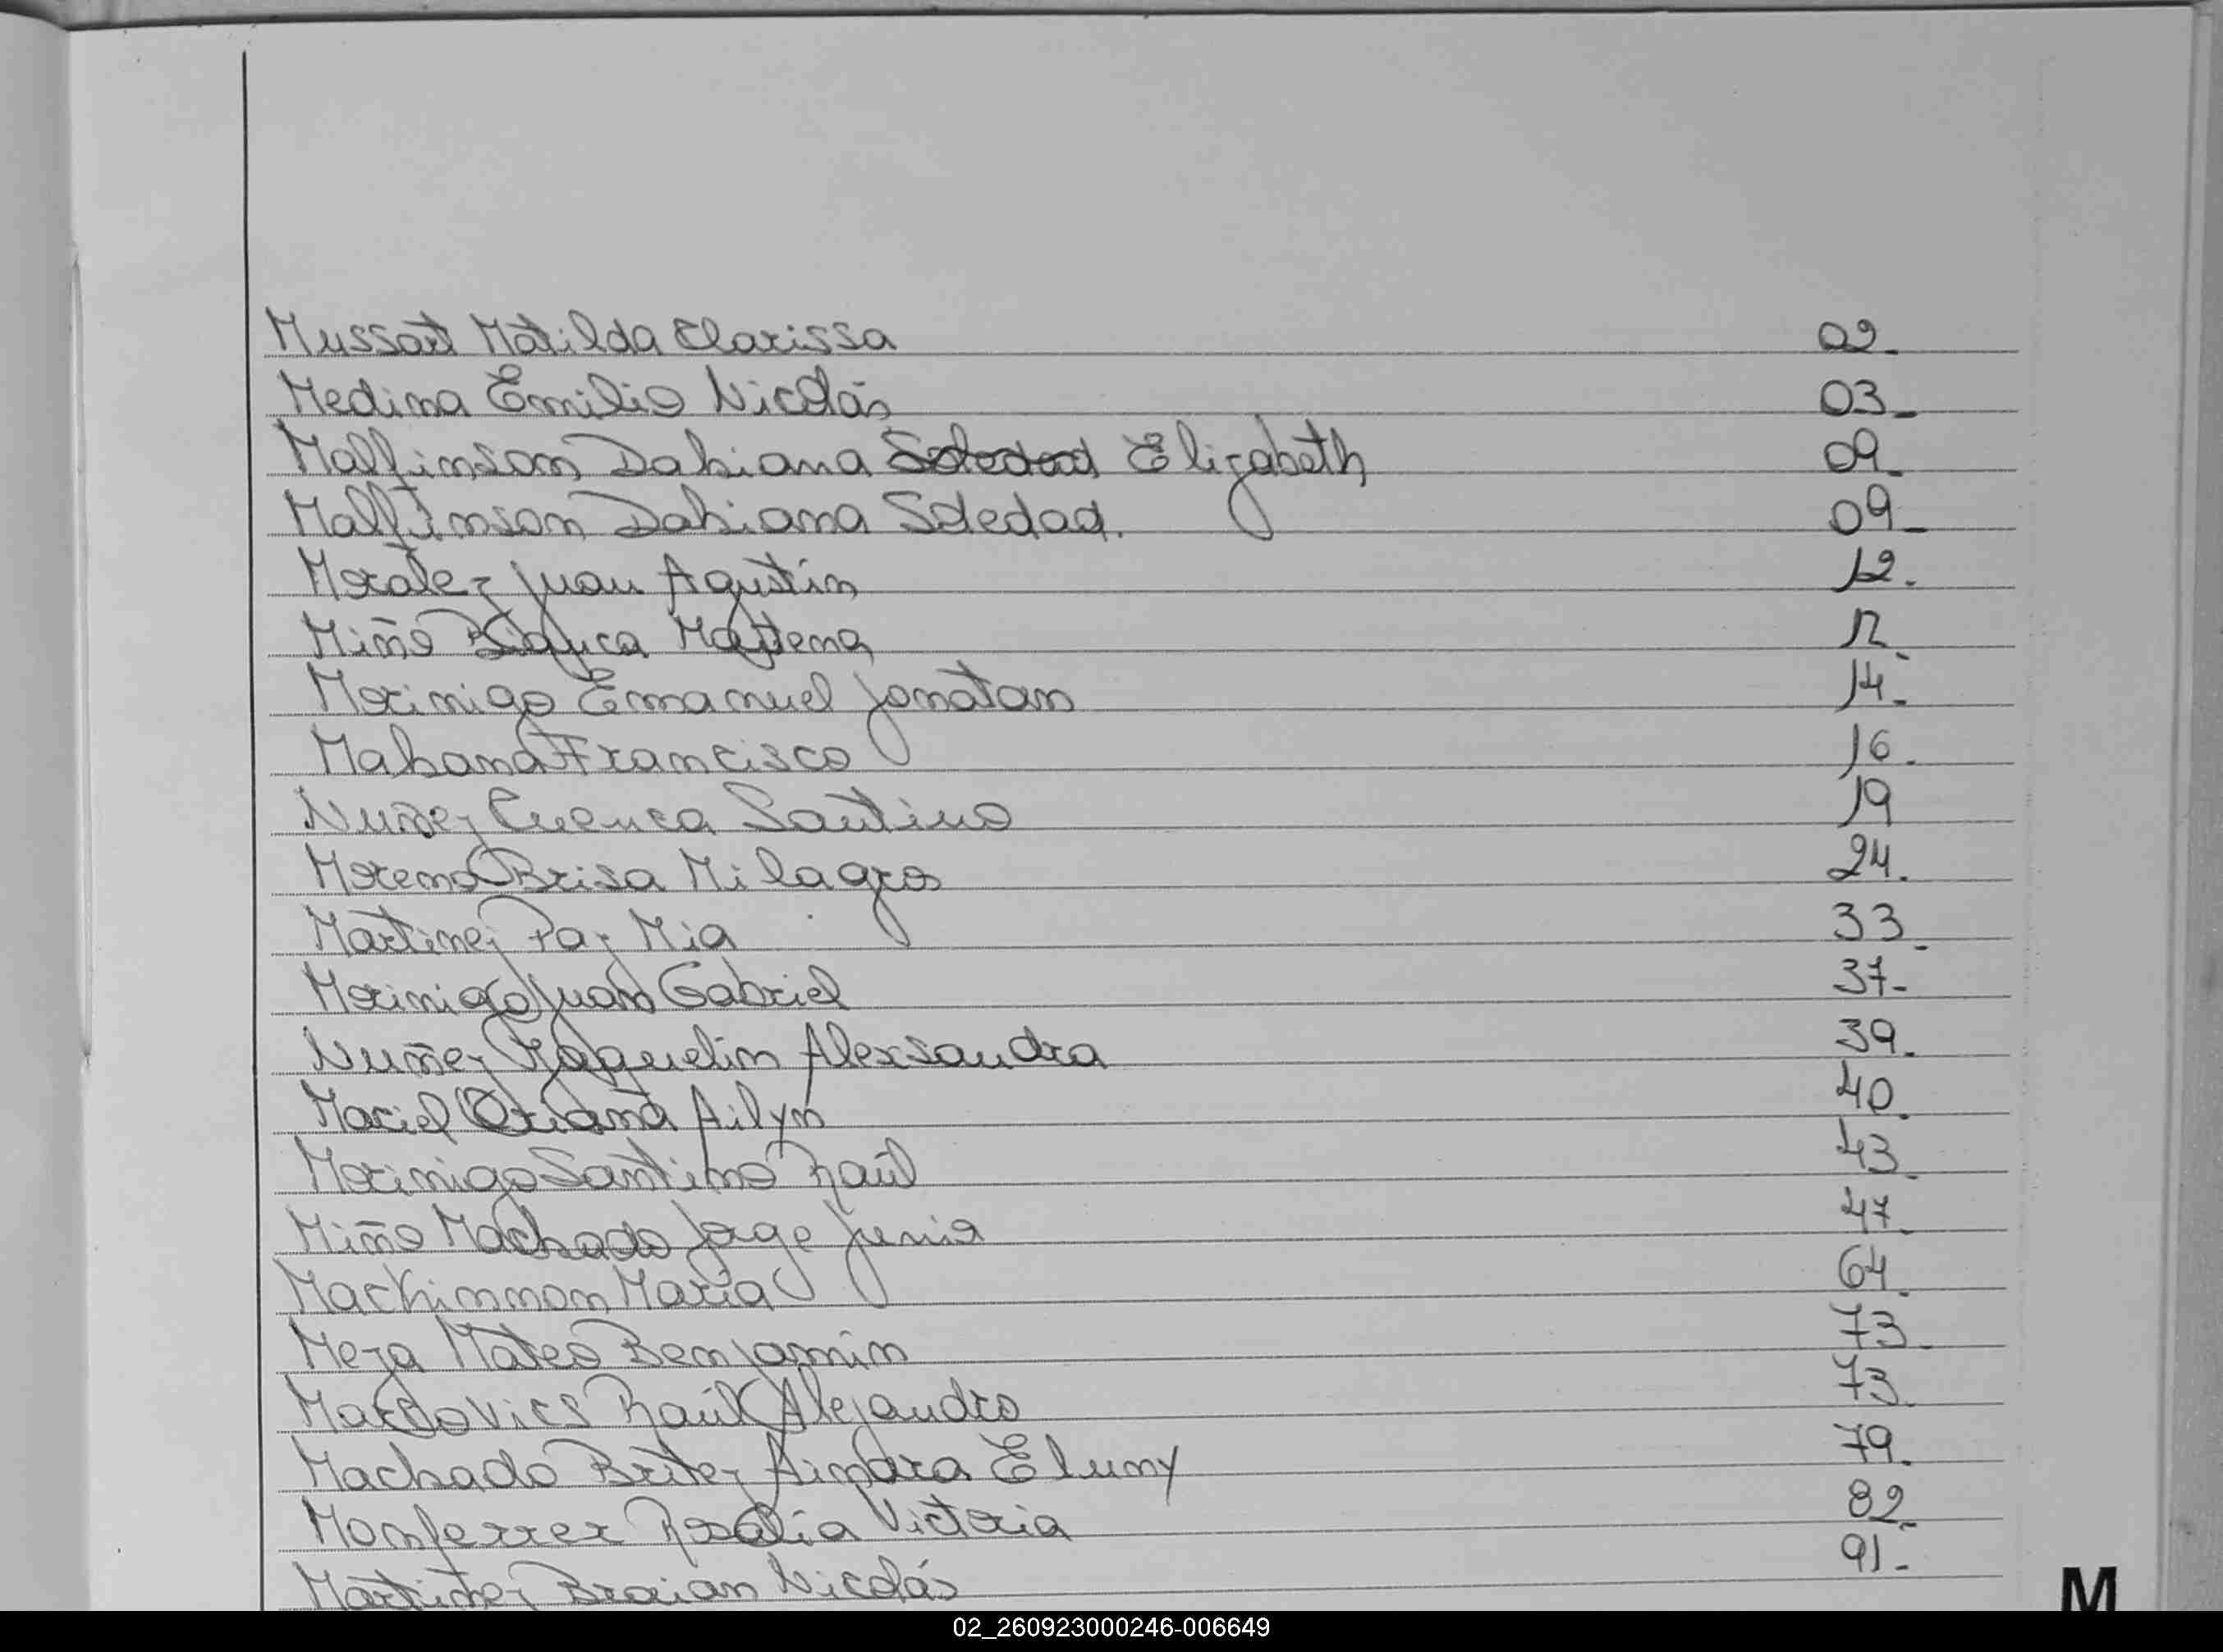 Mussart Matilda Clarissa 02.
Medina Emilio Nicolás 03-
Malfinson Dahiana Soledad Elizabeth 09.
Malfinson Dahiana Soledad. 09-
Moralez Juan Agustin 12.
Miño Bianca Maitena 12.
Morinigo Emanuel Jonatan 14.
Mabana Francisco 16.
Nuñez Cuenca Santino 19
Moreno Brisa Milagros 24.
Martinez Paz Mia 33.
Morinigo Juan Gabriel 37-
Nuñez Alexsandra 39.
Maciel Oriana Ailyn 40.
Morinigo Santino Raúl 43.
Miño Machado Jorge 47.
Mackinnon Maria 64.
Meza Mateo Benjamin 73.
Raúl Alejandro 73.
Machado Britez Aindra Eluny 79.
Monferrer Rosalia Victoria 82.
Martinez Braian Nicolás 91-
M
02_260923000246-006649